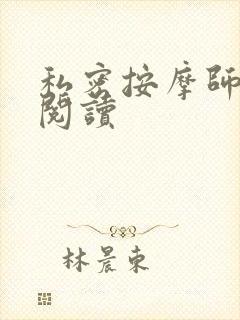 私密按摩師
閱讀
林晨東